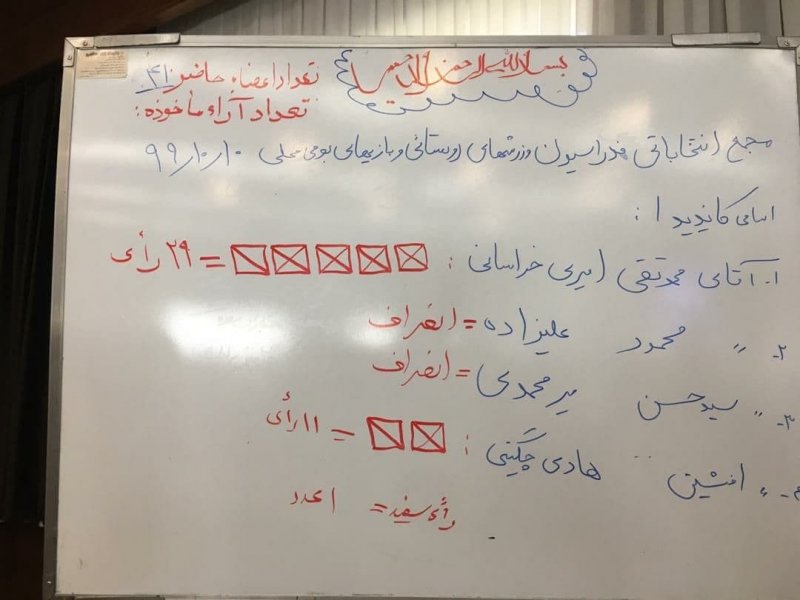 بسم الله الرحمن الرحیم
تعداد اعضاء حاضر: ۴۱
تعداد آراء مأخوذه:
مجمع انتخاباتی فدراسیون ورزشهای روستائی و بازیهای بومی محلی ۹۹/۱۰/۱۰
اسامی کاندیدا:
۱- آقای محمدتقی امیری خراسانی: = ۲۹ رأی
۲- " محمود علیزاده = انصراف
۳- " سیدحسن میرمحمدی = انصراف
۴- " افشین هادی چگینی: = ۱۱ رأی
رأی سفید = ۱ عدد